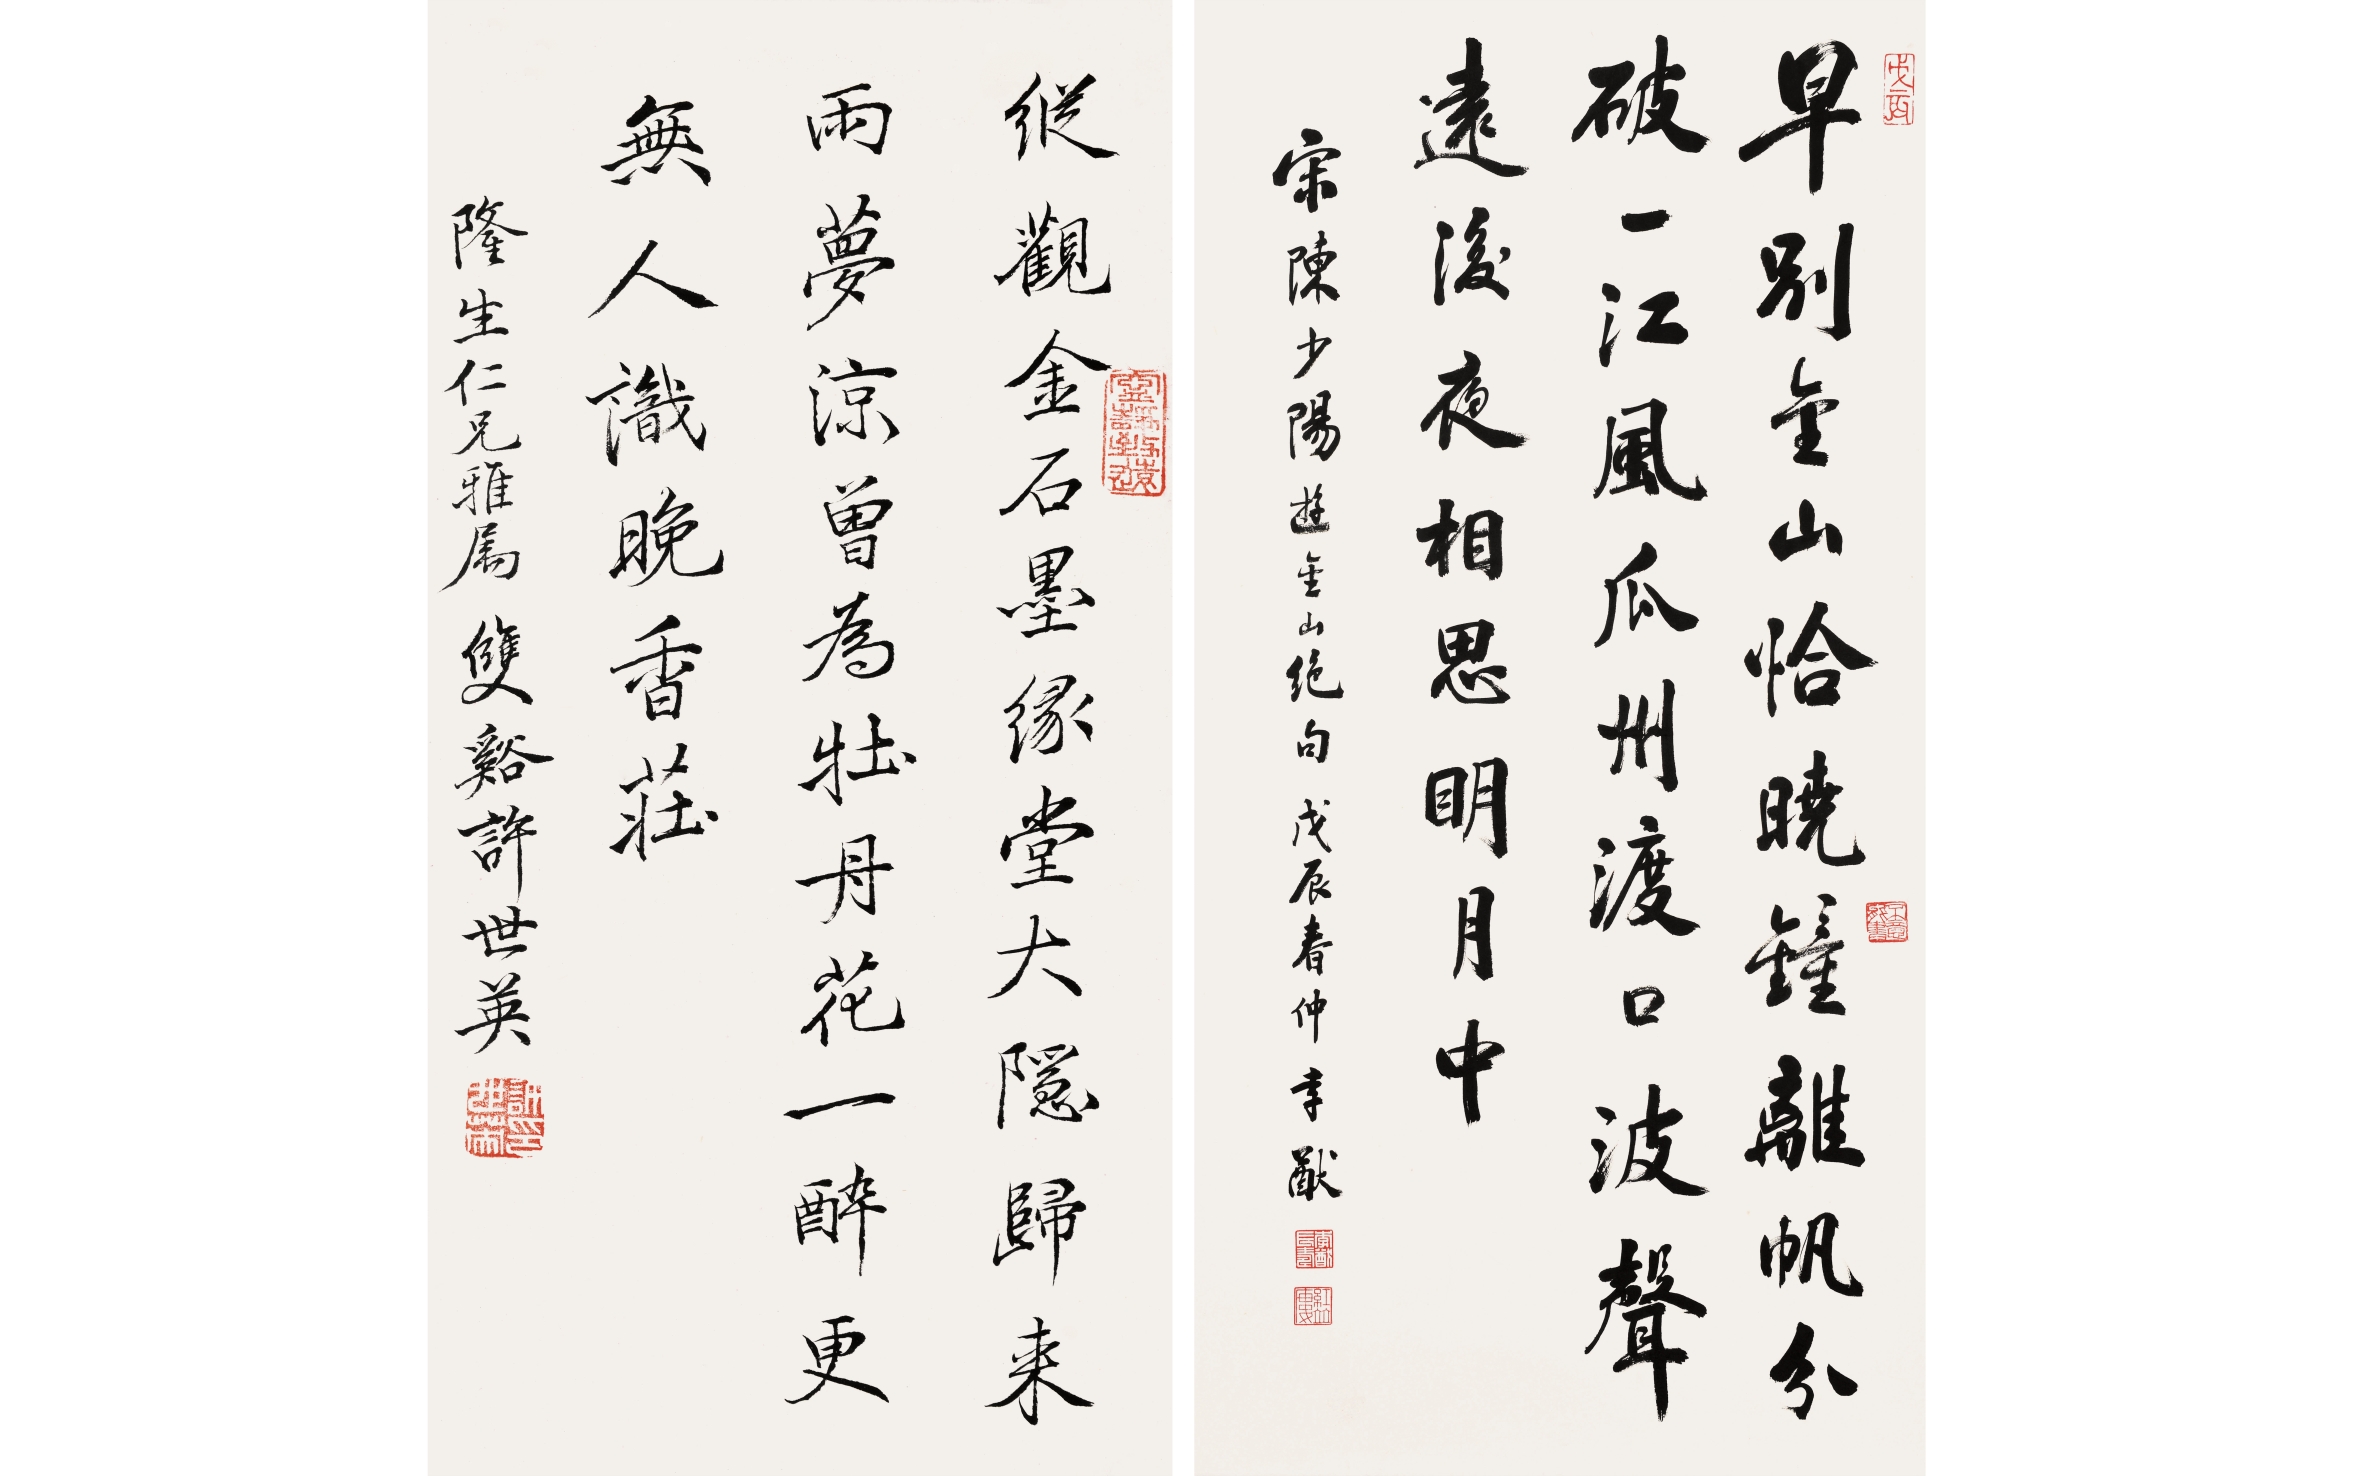 早別金山恰曉鐘離帆分
破一江風瓜州渡口波聲
遠後夜相思明月中
宋陳少陽遊金山絕句 戊辰春仲 李猷
縱觀金石墨緣堂大隱歸来
雨夢涼曾為牡丹花一醉更
無人識晚香莊
隆生仁兄雅属 雙谿許世英